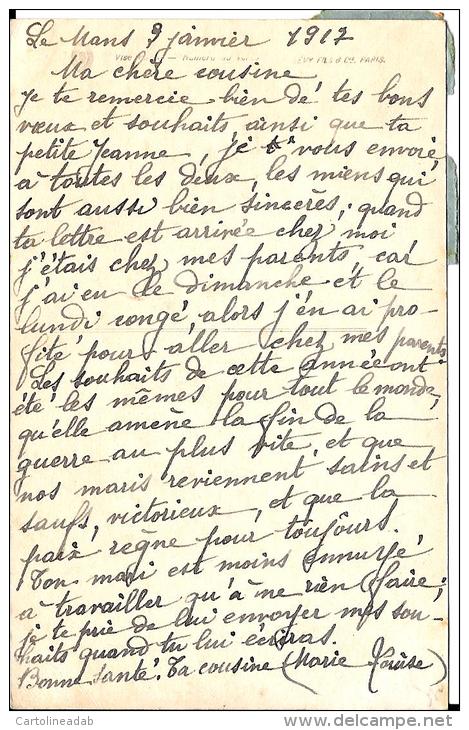 Le Mans 9 janvier 1917
LÉVY FILS & Cie, PARIS.
Ma chère cousine
Je te remercie bien de tes bons
vœux et souhaits ainsi que ta
petite Jeanne, je vous envoie
à toutes les deux, les miens qui
sont aussi bien sincères, quand
ta lettre est arrivée chez moi
j'étais chez mes parents, car
j'ai eu le dimanche et le
lundi congé, alors j'en ai pro-
fité pour aller chez mes parents
Les souhaits de cette année ont
été les mêmes pour tout le monde,
qu'elle amène la fin de la
guerre au plus vite, et que
nos maris reviennent sains et
saufs, victorieux, et que la
paix, règne pour toujours.
Ton mari est moins ennuyé
à travailler qu'à ne rien faire;
je te prie de lui envoyer mes sou-
haits quand tu lui écriras.
Bonne santé. Ta cousine (Marie Louise)
Cartolineadab
www.delcampe.net